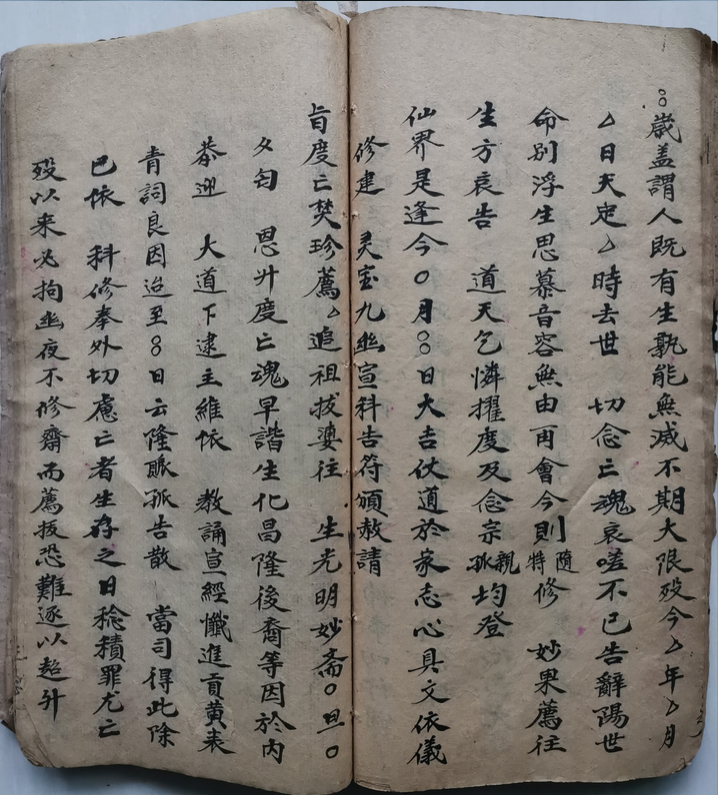 〇〇歲盖謂人既有生孰能無滅不期大限歿今厶年厶月
厶日天定厶時去世 切念亡魂哀嗟不已告辭陽世
命別浮生思慕音容無由再會今則隨特修 妙果薦往
生方哀告 道天乞憐擢度及念宗親孤均登
仙界是逢今〇月〇〇日大吉仗道於家志心具文依儀
修建 灵宝九幽宣科告符頒赦請
旨度亡焚珍薦厶追祖拔婆往 生光明妙斋〇旦〇
夕匃 恩升度亡魂早諧生化昌隆後裔等因於内
恭迎 大道下逮主維依 教誦宣經懺進貢黃表
青詞良因迨至〇〇日云隆賑孤告散 當司得此除
巳依 科修奉外切慮亡者生存之日稔積罪尤亡
歿以来必拘幽夜不修齋而薦拔恐難逐以超升